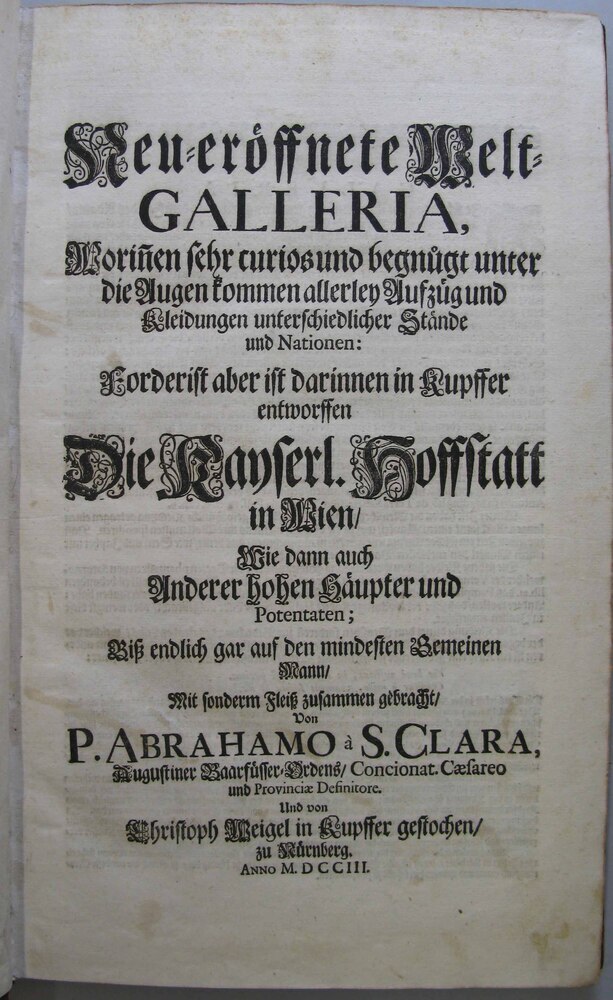 Neu-eröffnete Welt-
GALLERIA,
Woriñen sehr curios und begnügt unter
die Augen kommen allerley Aufzüg und
Kleidungen unterschiedlicher Stände
und Nationen:
Forderist aber ist darinnen in Kupffer
entworffen
Die Kayserl. Hoffstatt
in Wien/
Wie dann auch
Anderer hohen Häupter und
Potentaten;
Biß endlich gar auf den mindesten Gemeinen
Mann/
Mit sonderm Fleiß zusammen gebracht/
Von
P. ABRAHAMO à S. CLARA,
Augustiner Baarfüsser-Ordens/ Concionat. Cæsareo
und Provinciæ Definitore.
Und von
Christoph Weigel in Kupffer gestochen/
zu Nürnberg.
ANNO M. DCCIII.